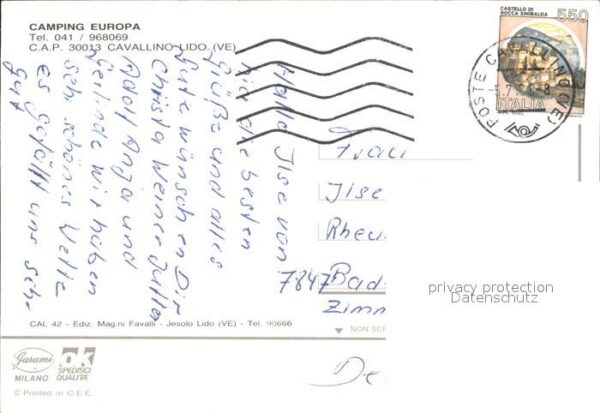 CAMPING EUROPA
Tel. 041 / 968069
C.A.P. 30013 CAVALLINO LIDO. (VE)
CASTELLO DI
ROCCA SINIBALDA
550
ITALIA
POSTE CAVALLINO (VE)
Hallo Ilse von
hier die besten
Grüße und alles
Gute wünschen Dir
Christa Werner Jutta
Adolf Anja und
Gerlinde wir haben
sehr schönes Wetter
es gefällt uns sehr
gut
Frau
Ilse
Rheu
7847 Bade
Zimm
De
privacy protection
Datenschutz
CAL 42 - Ediz. Mag.ni Favalli - Jesolo Lido (VE) - Tel. 90666
NON SCR
Garami
MILANO
OK
SPEDISCI
QUALITÀ
© Printed in C.E.E.